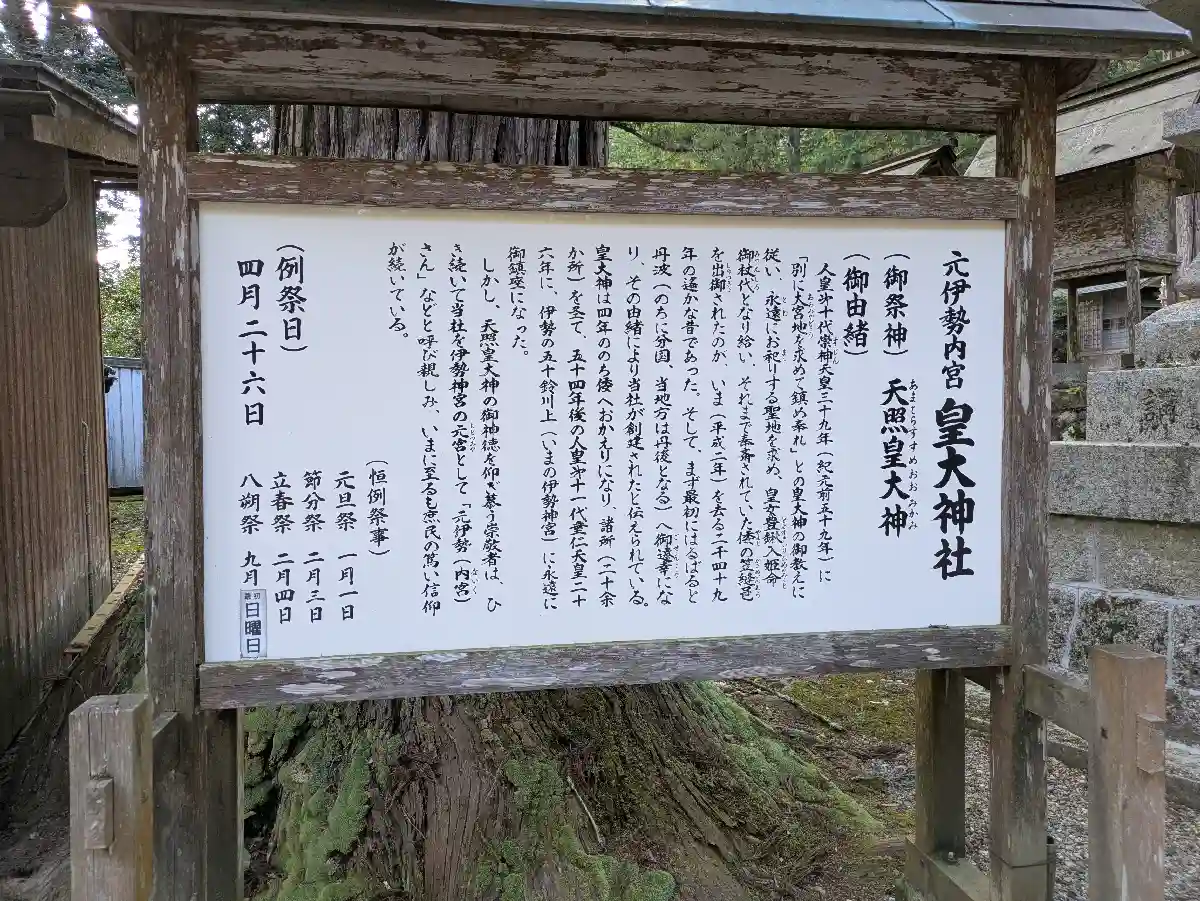 元伊勢内宮 皇大神社
(御祭神) 天照皇大神
あまてらすすめおおみかみ
(御由緒)
人皇第十代崇神天皇三十九年(紀元前五十九年)に
「別に大宮地を求めて鎮め奉れ」との皇大神の御教えに
従い、永遠にお祀りする聖地を求め、皇女豊鍬入姫命
御杖代となり給い、それまで奉斎されていた倭の笠縫邑
を出御されたのが、いま(平成二年)を去る二千四十九
年の遙かな昔であった。そして、まず最初にはるばると
丹波(のちに分国、当地方は丹後となる)へ御遠幸にな
り、その由緒により当社が創建されたと伝えられている。
皇大神は四年ののち倭へおかえりになり、諸所(二十余
か所)を巠て、五十四年後の人皇第十一代垂仁天皇二十
六年に、伊勢の五十鈴川上(いまの伊勢神宮)に永遠に
御鎮座になった。
しかし、天照皇大神の御神徳を仰ぎ慕う崇敬者は、ひ
き続いて当社を伊勢神宮の元宮として「元伊勢(内宮)
さん」などと呼び親しみ、いまに至るも庶民の篤い信仰
が続いている。
(恒例祭事)
元旦祭 一月一日
節分祭 二月三日
立春祭 二月四日
八朔祭 九月 最初日曜日
(例祭日)
四月二十六日